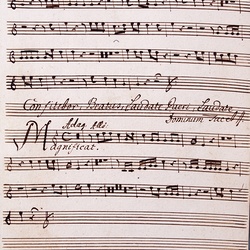 Confitebor, Beatus, Laudate Pueri, Laudate
Dominum tacet
Adag:
Magnificat.